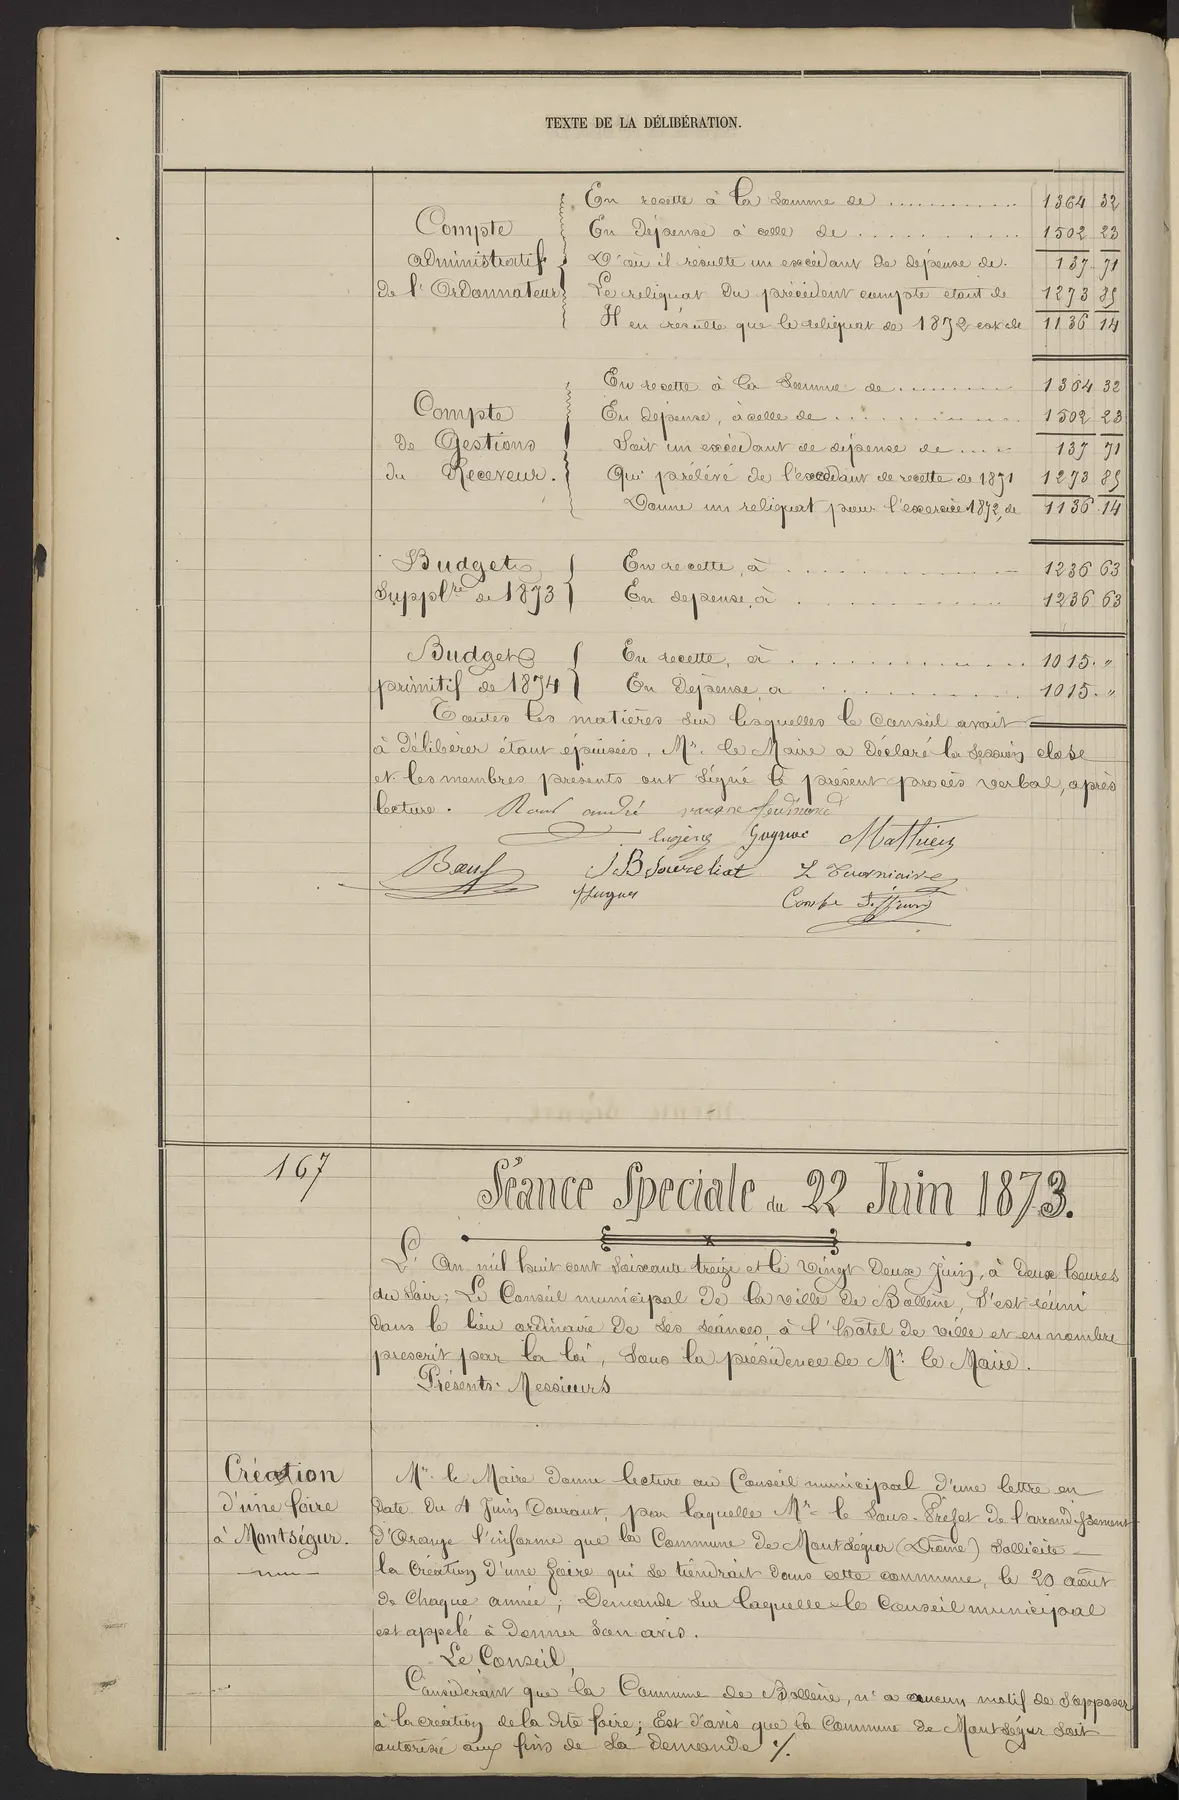 TEXTE DE LA DÉLIBÉRATION.
Compte administratif de l'Ordonnateur
En recette à la somme de ............ 1364 32
En Dépense à celle de ............ 1502 23
D'où il résulte un excédant de dépense de. 137 71
Le reliquat du précédent compte étant de 1273 85
Il en résulte que le reliquat de 1872 est de 1136 14
Compte de Gestions du Receveur.
En recette à la Somme de ......... 1364 32
En Dépense, à celle de ............ 1502 23
Soit un excédant de dépense de ... 137 71
Qui prélévé de l'excédant de recette de 1871 1273 85
Donne un reliquat pour l'exercice 1872, de 1136 14
Budget Suppl.re de 1873
En recette, à ............ 1236 63
En depense, à ............ 1236 63
Budget primitif de 1874
En recette, à ............ 1015. "
En Dépense, a ............ 1015. "
Toutes les matières sur lesquelles le Conseil avait
à Délibérer étant épuisées, Mr. le Maire a Déclaré la Session close
et les membres présents ont Signé le présent procès verbal, après
lecture.
andré
Eugène Gognac Mathieu
Boeuf
Hugues
Combe
167
Séance Speciale du 22 Juin 1873.
L'An mil huit cent Soixante treize et le vingt Deux Juin, à Deux heures
du Soir; Le Conseil municipal De la ville de Bollène, S'est réuni
Dans le lieu ordinaire De Ses séances, à l'hôtel De ville et en nombre
prescrit par la loi, Sous la présidence de Mr. le Maire.
Présents: Messieurs
Création
d'une foire
à Montségur.
Mr. le Maire donne lecture au Conseil municipal d'une lettre en
Date Du 4 Juin Courant, par laquelle Mr. le Sous-Préfet De l'arrondissement
d'Orange l'informe que la Commune De Montségur (Drôme) Sollicite
la Création D'une foire qui Se tiendrait Dans cette commune, le 20 août
De Chaque année; Demande Sur laquelle le Conseil municipal
est appelé à Donner Son avis.
Le Conseil,
Considérant que la Commune de Bollène, n'a aucun motif de S'opposer
à la création de la dite foire; Est D'avis que la Commune De Montségur Soit
autorisée aux fins de Sa Demande ./.